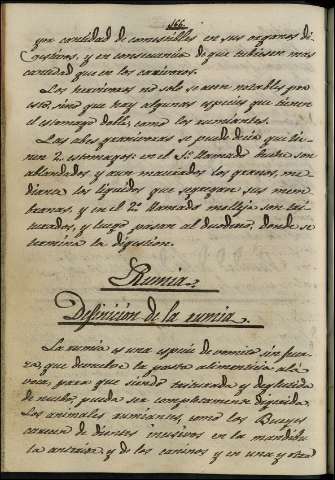 166.
yor cantidad de comestibles en sus organos di-
gestivos, y en consecuencia de que tubiesen mas
cantidad que en los carnivoros.
Los hervivoros no solo se aven notables por
esto, sino que hay algunas especies que tienen
el estomago doble, como los rumiantes.
Las abes granivoras se puede decir que tie-
nen 2 estomagos: en el 1º llamado buche son
ablandados y aun macerados los granos, me-
diante los liquidos que segregan sus mem-
branas, y en el 2º llamado molleja son tri-
turados, y luego pasan al duodeno, donde se
termina la digestion.
Rumia.
Definición de la rumia.
La rumia es una especie de vomito sin fuer-
za, que devuelve la pasta alimenticia a la
voca, para que siendo triturada y deglutida
de nuebo, pueda ser completamente digerida.
Los animales rumiantes, como los Bueyes
carecen de dientes incisivos en la mandibula
la anterior, y de los caninos en una y otra